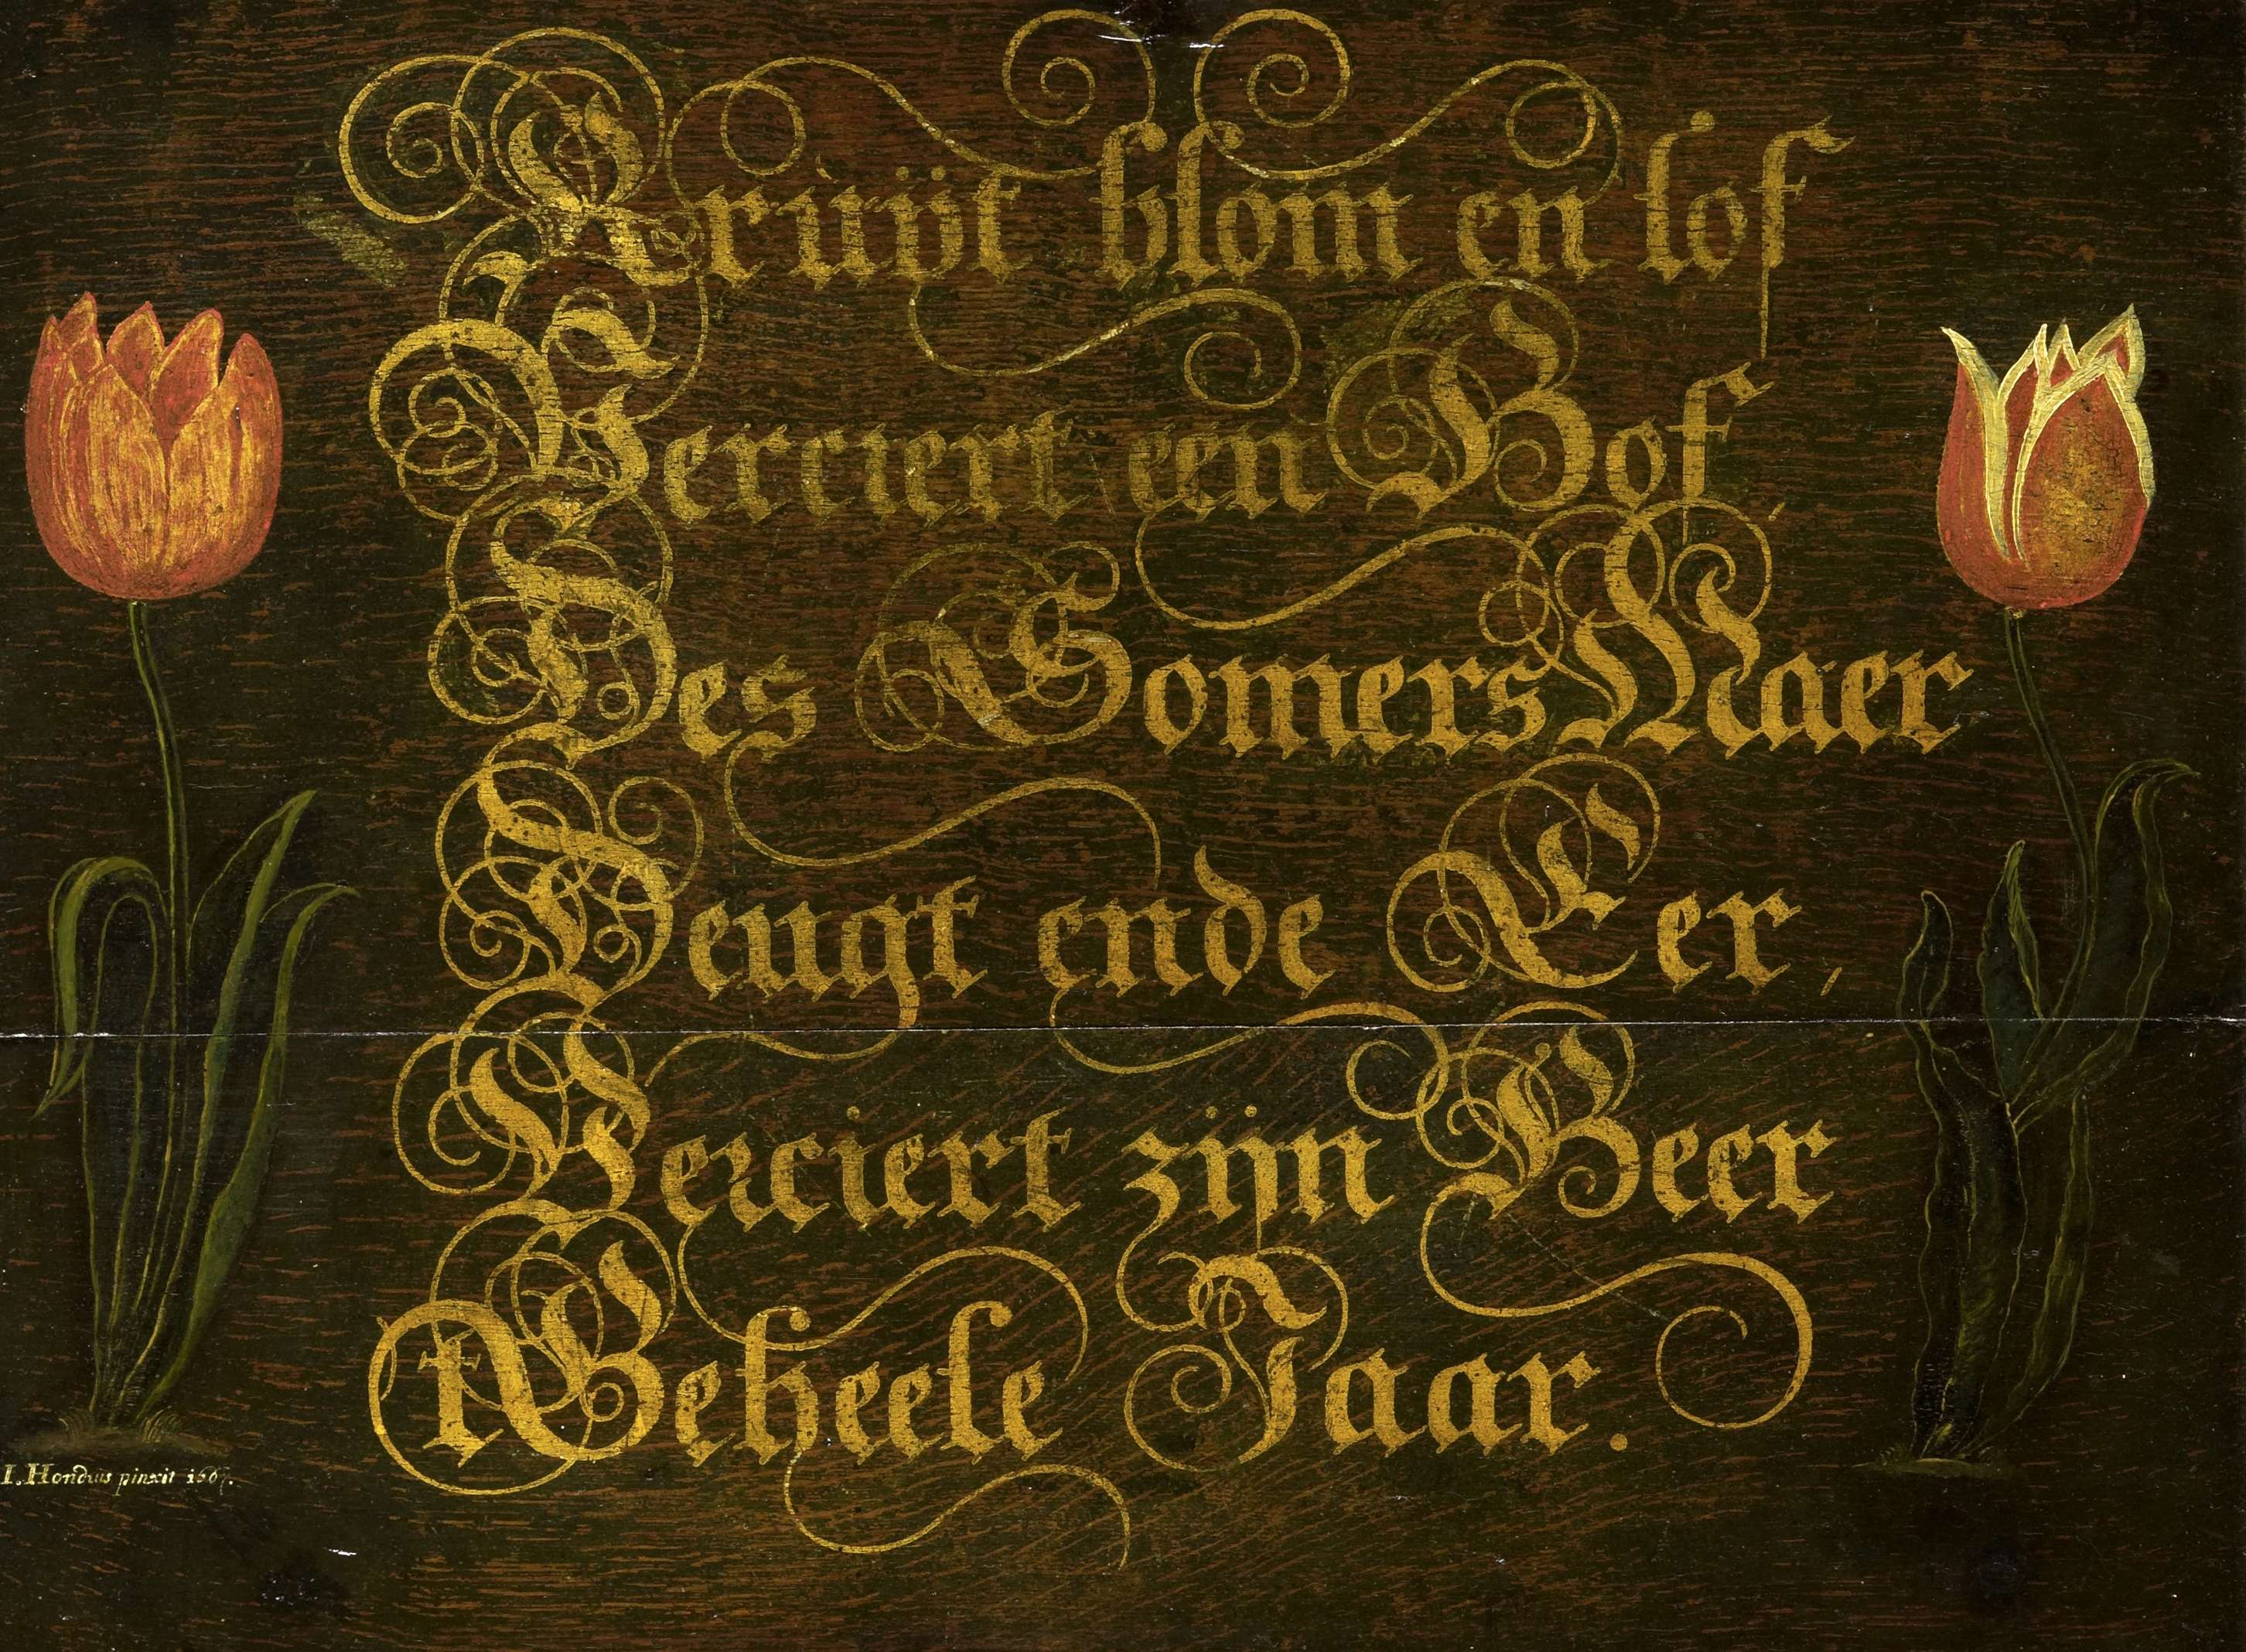 Kruÿt blom en lof
Verciert een Hof,
Des Somers Maer
Deugt ende Eer,
Verciert zijn Heer
t Geheele Jaar.
I. Hondius pinxit 1667.